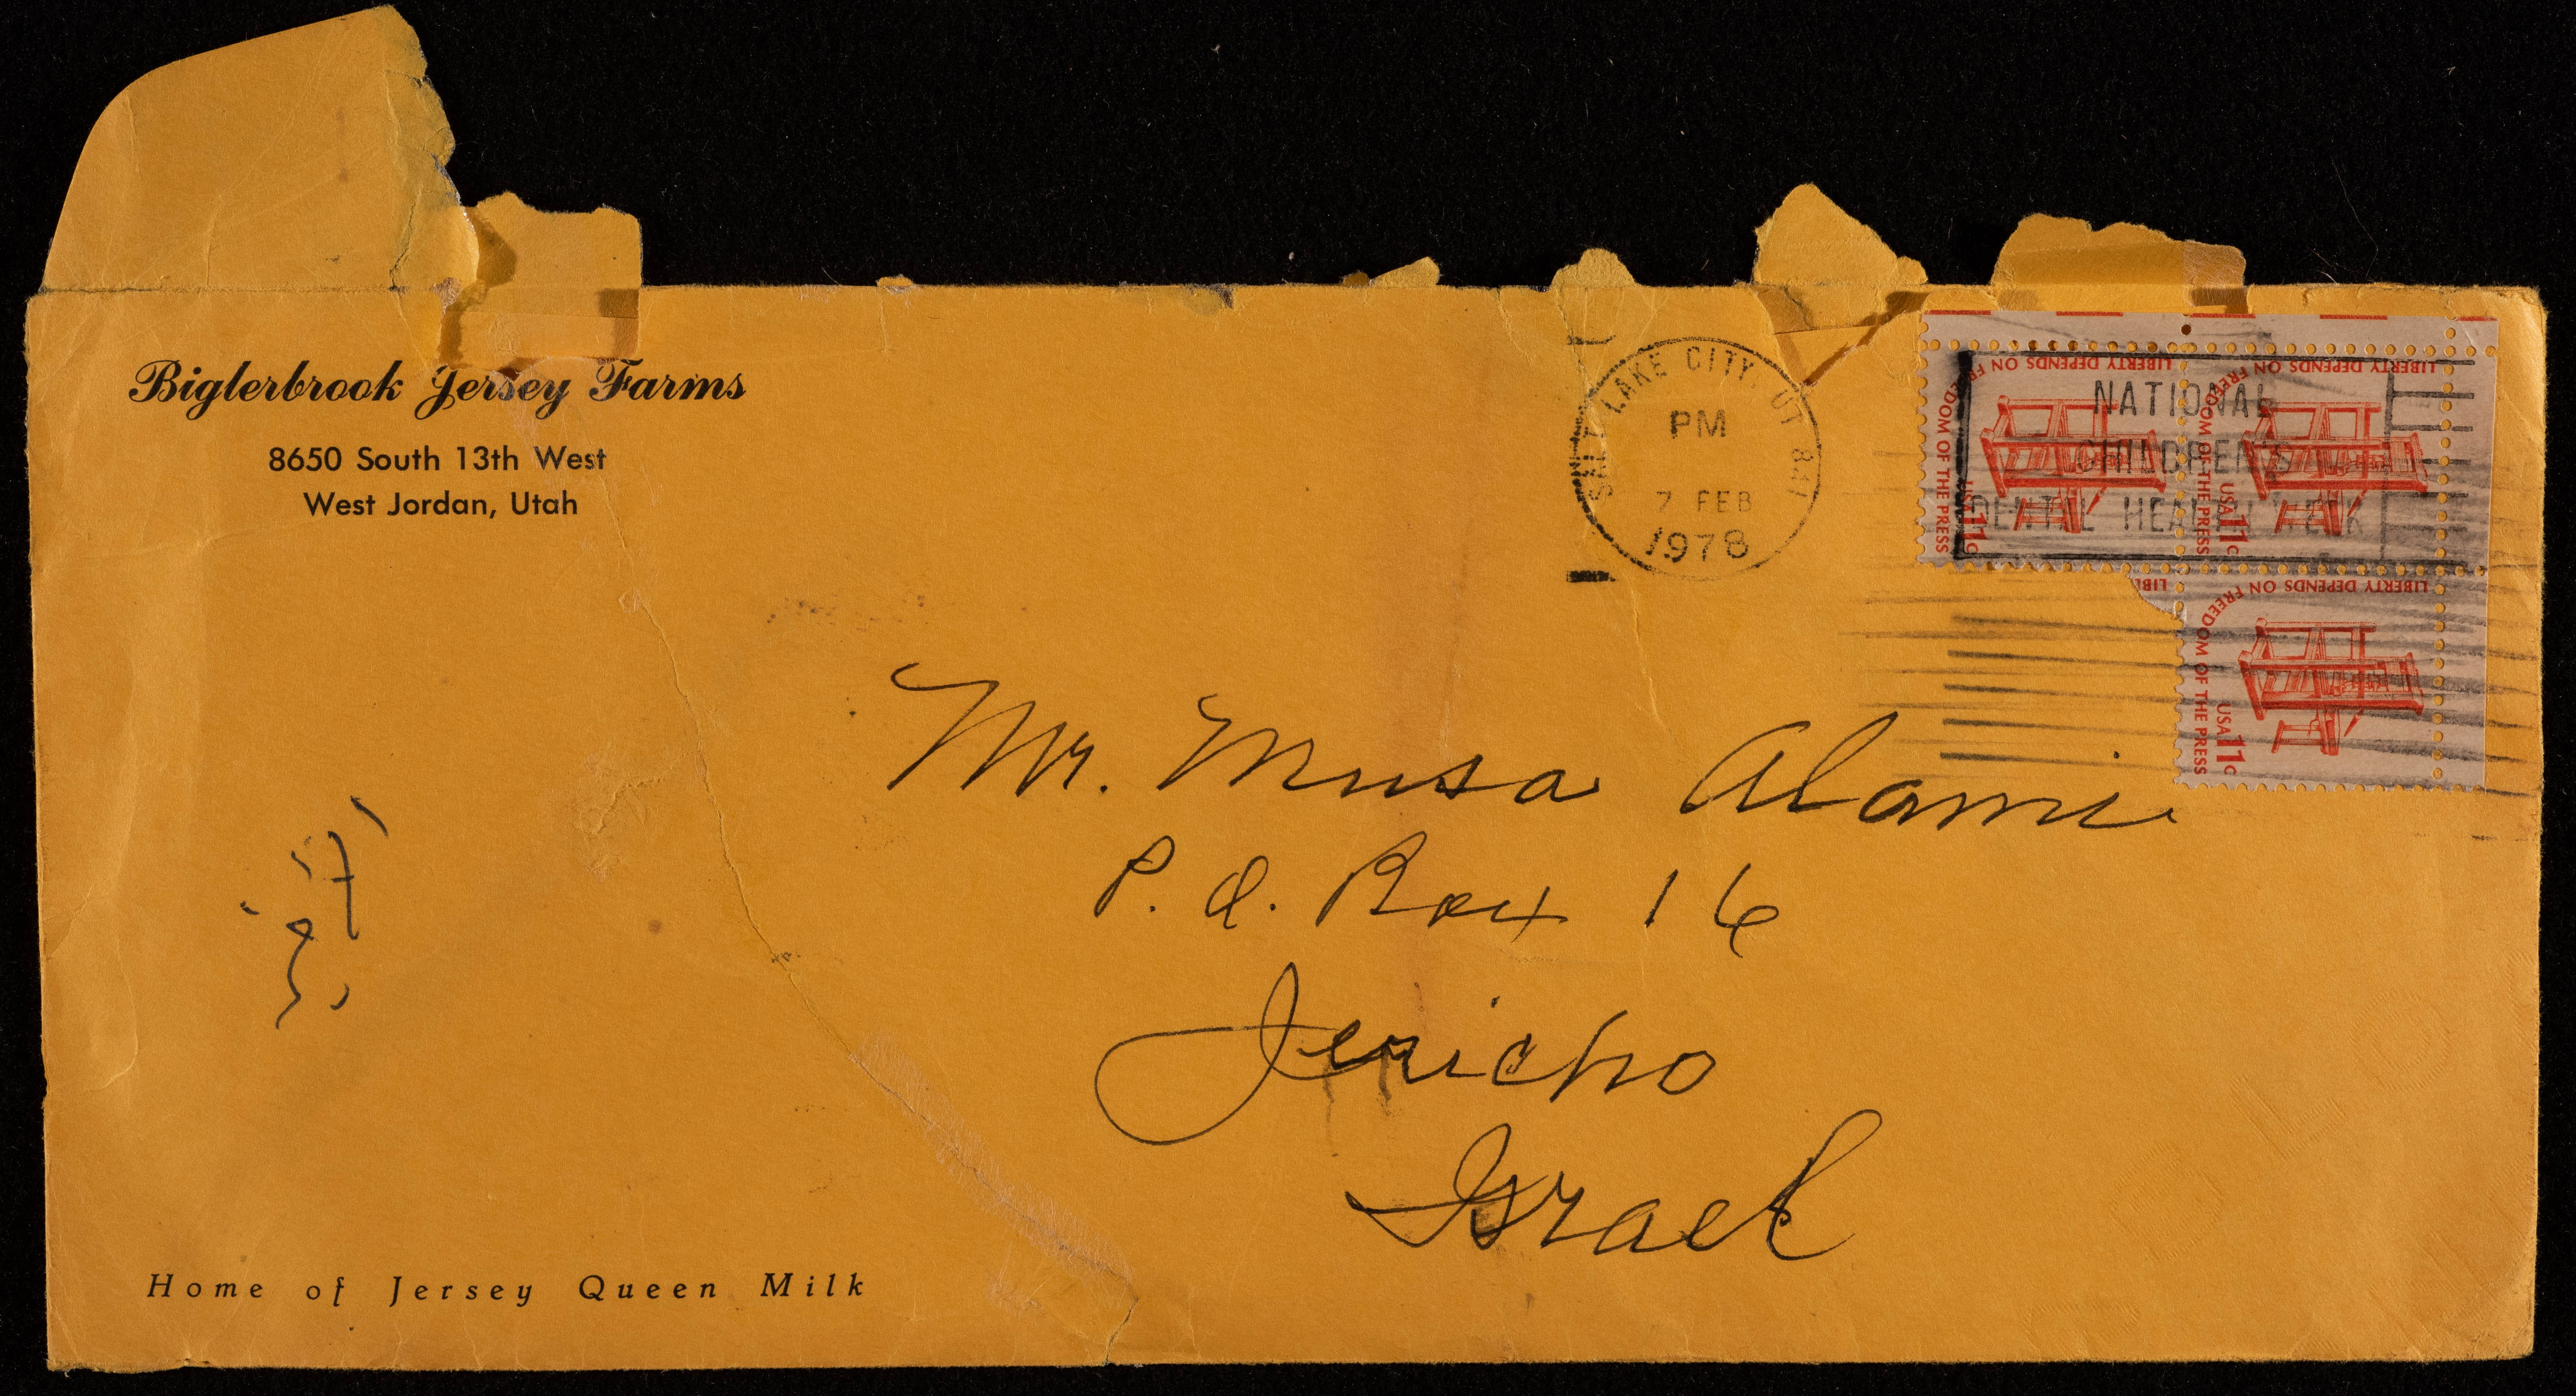 Biglerbrook Jersey Farms
8650 South 13th West
West Jordan, Utah
SALT LAKE CITY, UT 841
PM
7 FEB
1978
NATIONAL
CHILDREN'S
DENTAL HEALTH WEEK
LIBERTY DEPENDS ON FREEDOM OF THE PRESS
USA 11c
LIBERTY DEPENDS ON FREEDOM OF THE PRESS
USA 11c
LIBE
LIBERTY DEPENDS ON FREEDOM OF THE PRESS
USA 11c
Mr. Musa Alami
P.O. Box 16
Jericho
Israel
Home of Jersey Queen Milk